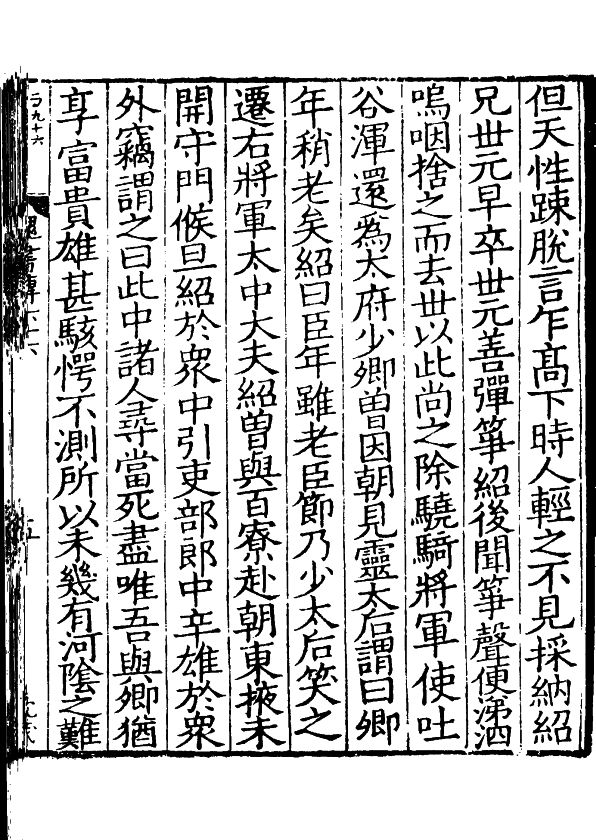 但天性踈脫言乍高下時人輕之不見採納紹
兄丗元早卒丗元善彈箏紹後聞箏聲便涕泗
嗚咽捨之而去丗以此尚之除驍騎將軍使吐
谷渾還爲太府少卿曽因朝見靈太后謂曰卿
年稍老矣紹曰臣年雖老臣節乃少太后笑之
遷右將軍太中大夫紹曽與百寮赴朝東掖未
開守門候旦紹於衆中引吏部郎中辛雄於衆
外竊謂之曰此中諸人尋當死盡唯吾與卿猶
享富貴雄甚駭愕不測所以未幾有河隂之難